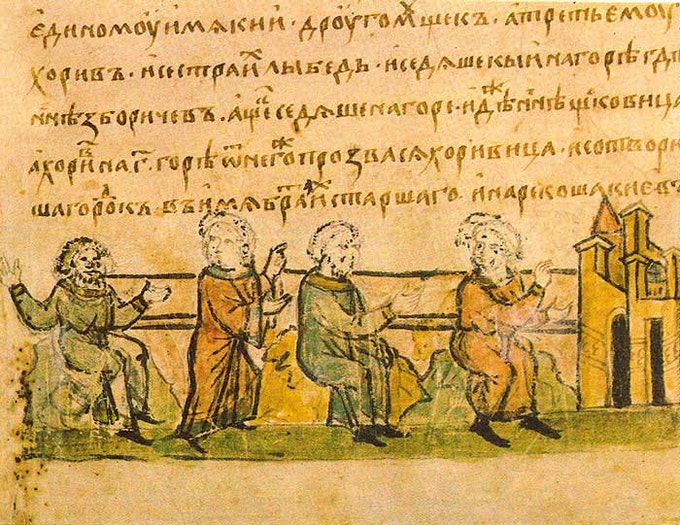 единомоу имѧ кии · дроугомⷹ щекъ · а третьемоу
хоривъ · и сестра иⷯ лыбедь · и седѧше кыи на горѣ гдѣ
ннѣ зборичевъ · а щеⷦ седѧше на горе · идѣⷤ ннѣ щековица
а хориⷡ на г҃ · горѣ ѿ негоⷤ прозвасѧ хоривица · и сотвори
ша гороⷣкъ · въ имѧ браⷮ иⷯ старшаго · и нарекоша киевъ